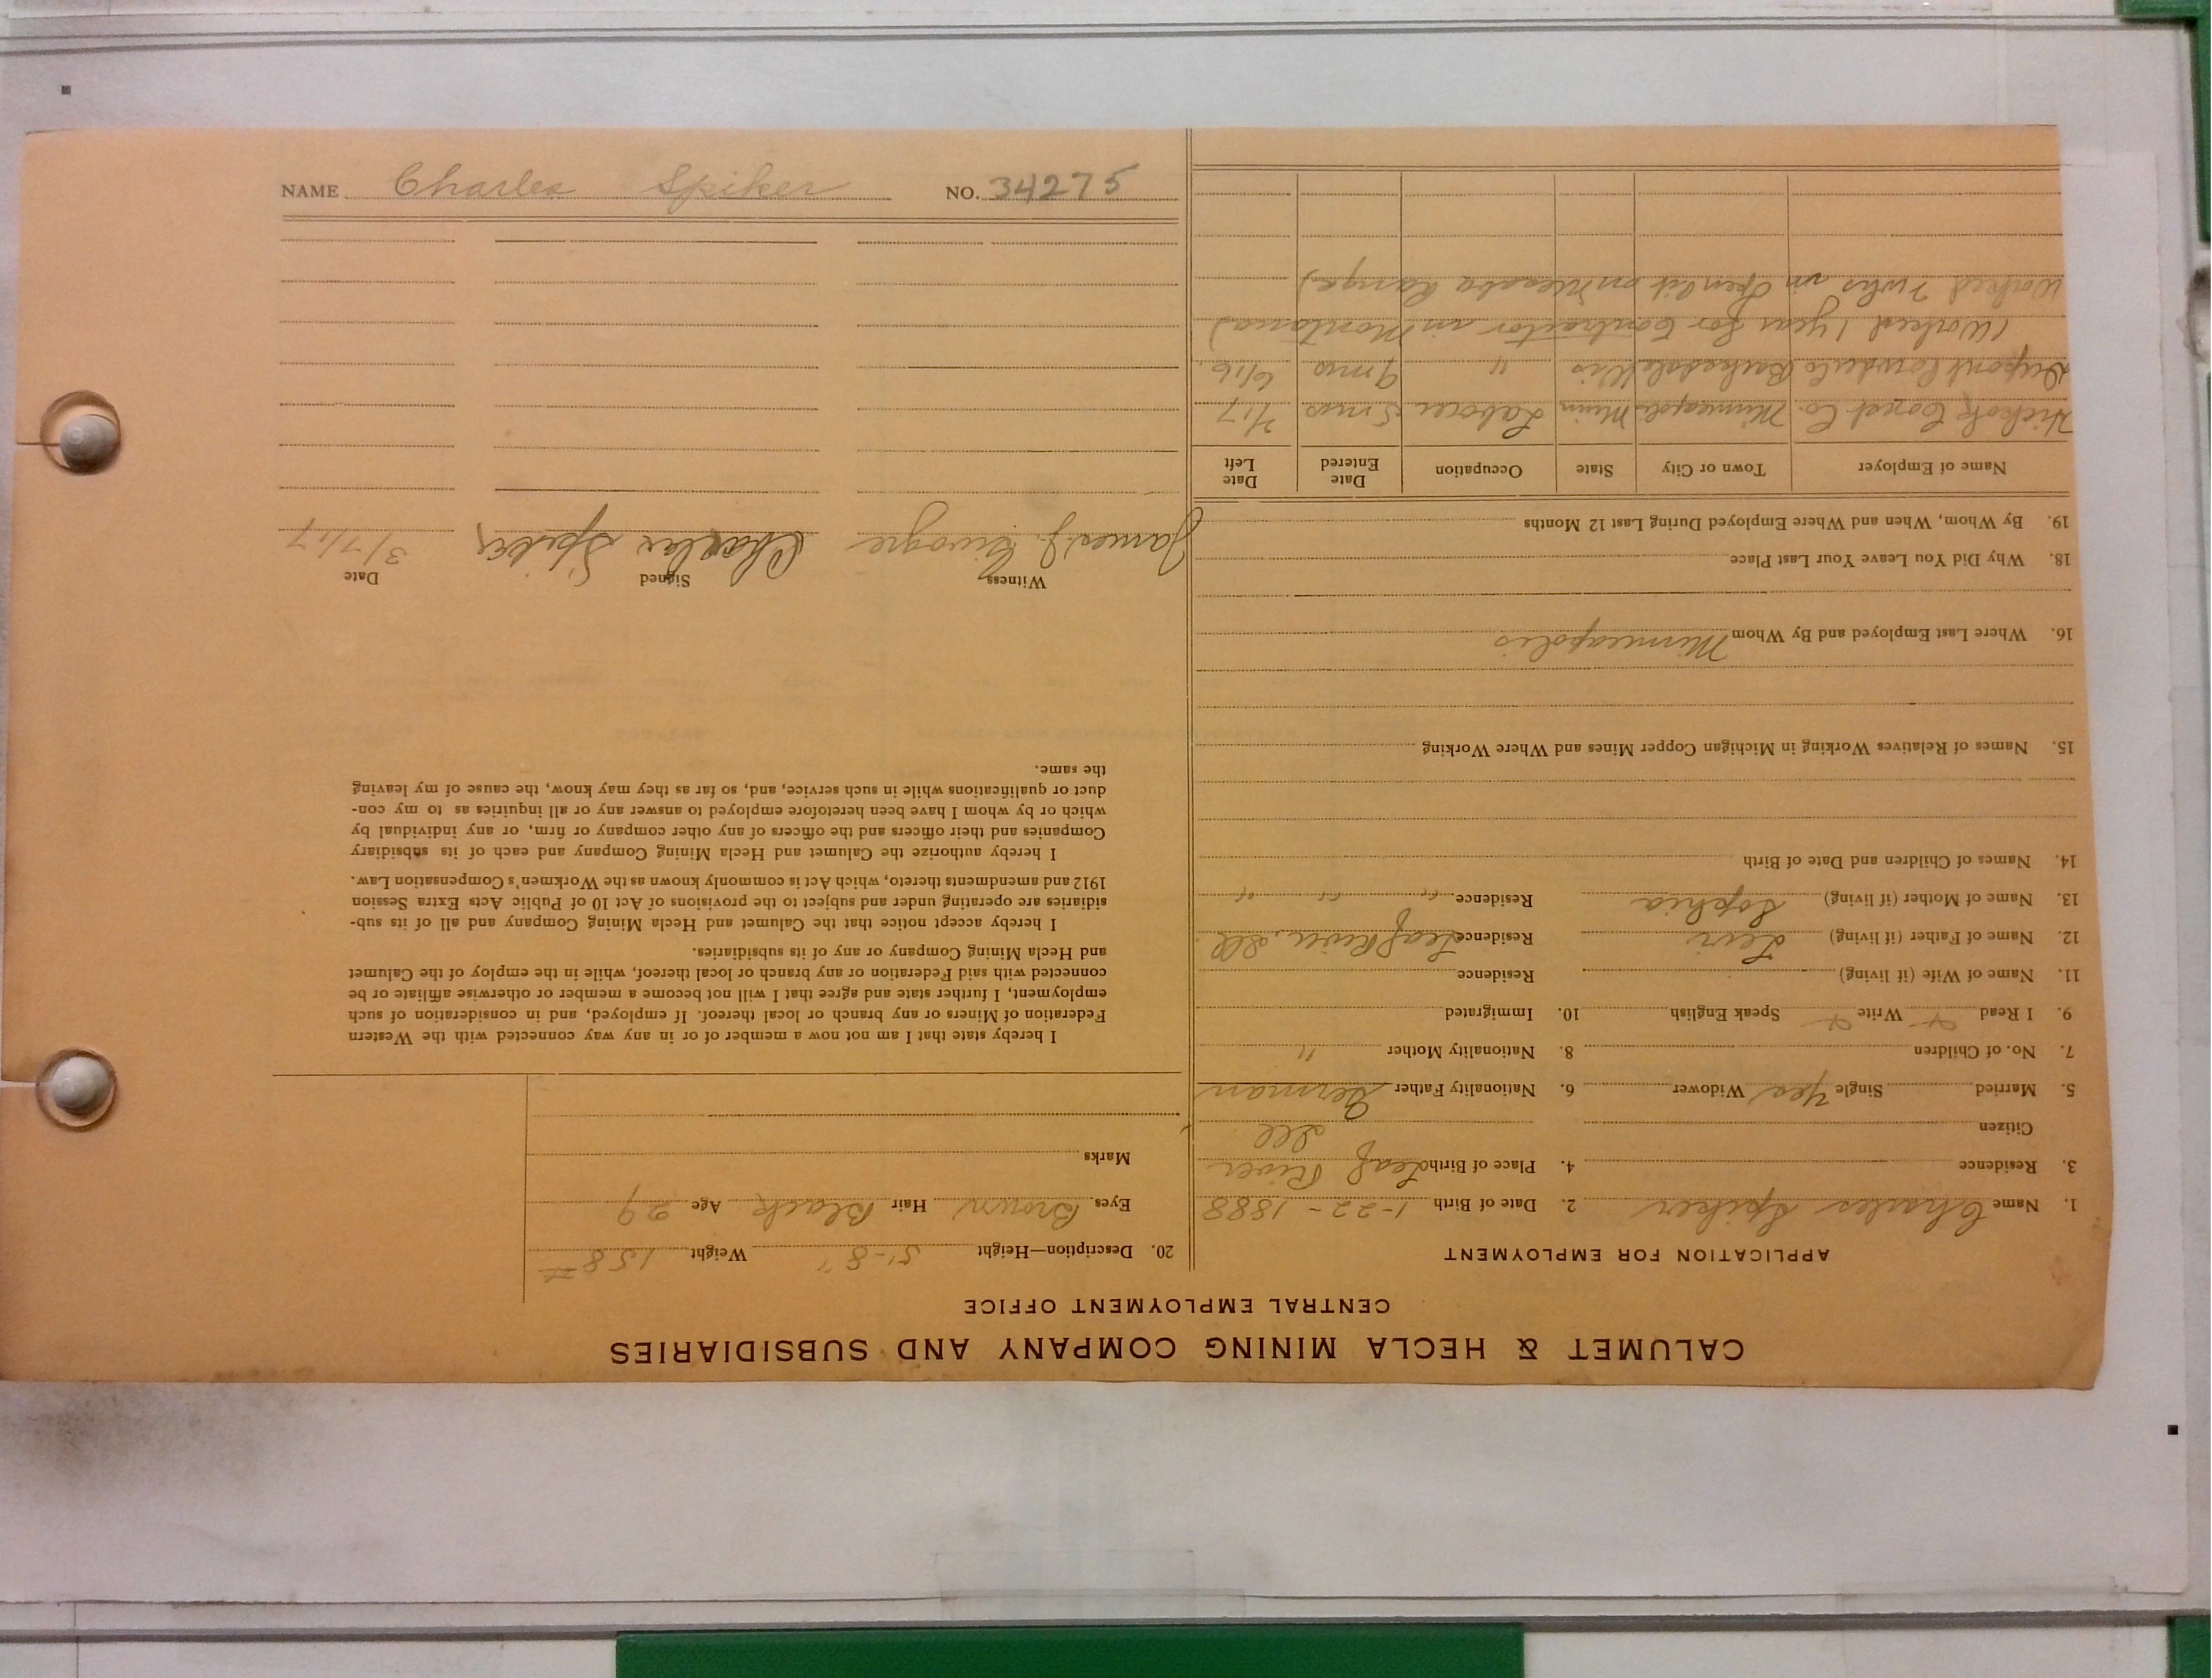 CALUMET & HECLA MINING COMPANY AND SUBSIDIARIES
CENTRAL EMPLOYMENT OFFICE
APPLICATION FOR EMPLOYMENT
1. Name Charles Spiker 2. Date of Birth 1-22-1888
3. Residence 4. Place of Birth Leaf River
Citizen Ill
5. Married Single Yes Widower 6. Nationality Father German
7. No. of Children 8. Nationality Mother "
9. I Read Write Speak English 10. Immigrated
11. Name of Wife (if living) Residence
12. Name of Father (if living) Levi Residence Leaf River, Ill
13. Name of Mother (if living) Sophia Residence " " "
14. Names of Children and Date of Birth
15. Names of Relatives Working in Michigan Copper Mines and Where Working
16. Where Last Employed and By Whom Minneapolis
18. Why Did You Leave Your Last Place
19. By Whom, When and Where Employed During Last 12 Months
Name of Employer Town or City State Occupation Date Entered Date Left
Const Co. Minneapolis Minn Laborer 5 mos 2/17
Dupont Powder Co Barksdale Wis " 9 mos 6/16
(Worked 1 year for Contractor in Montana)
Worked 7 wks in Open Pit on Mesaba Range)
20. Description—Height 5'-8" Weight 158#
Eyes Brown Hair Black Age 29
Marks
I hereby state that I am not now a member of or in any way connected with the Western
Federation of Miners or any branch or local thereof. If employed, and in consideration of such
employment, I further state and agree that I will not become a member or otherwise affiliate or be
connected with said Federation or any branch or local thereof, while in the employ of the Calumet
and Hecla Mining Company or any of its subsidiaries.
I hereby accept notice that the Calumet and Hecla Mining Company and all of its sub-
sidiaries are operating under and subject to the provisions of Act 10 of Public Acts Extra Session
1912 and amendments thereto, which Act is commonly known as the Workmen's Compensation Law.
I hereby authorize the Calumet and Hecla Mining Company and each of its subsidiary
Companies and their officers and the officers of any other company or firm, or any individual by
which or by whom I have been heretofore employed to answer any or all inquiries as to my con-
duct or qualifications while in such service, and, so far as they may know, the cause of my leaving
the same.
Witness Signed Date
James J. Charles Spiker 3/7/17
NAME Charles Spiker NO. 34275